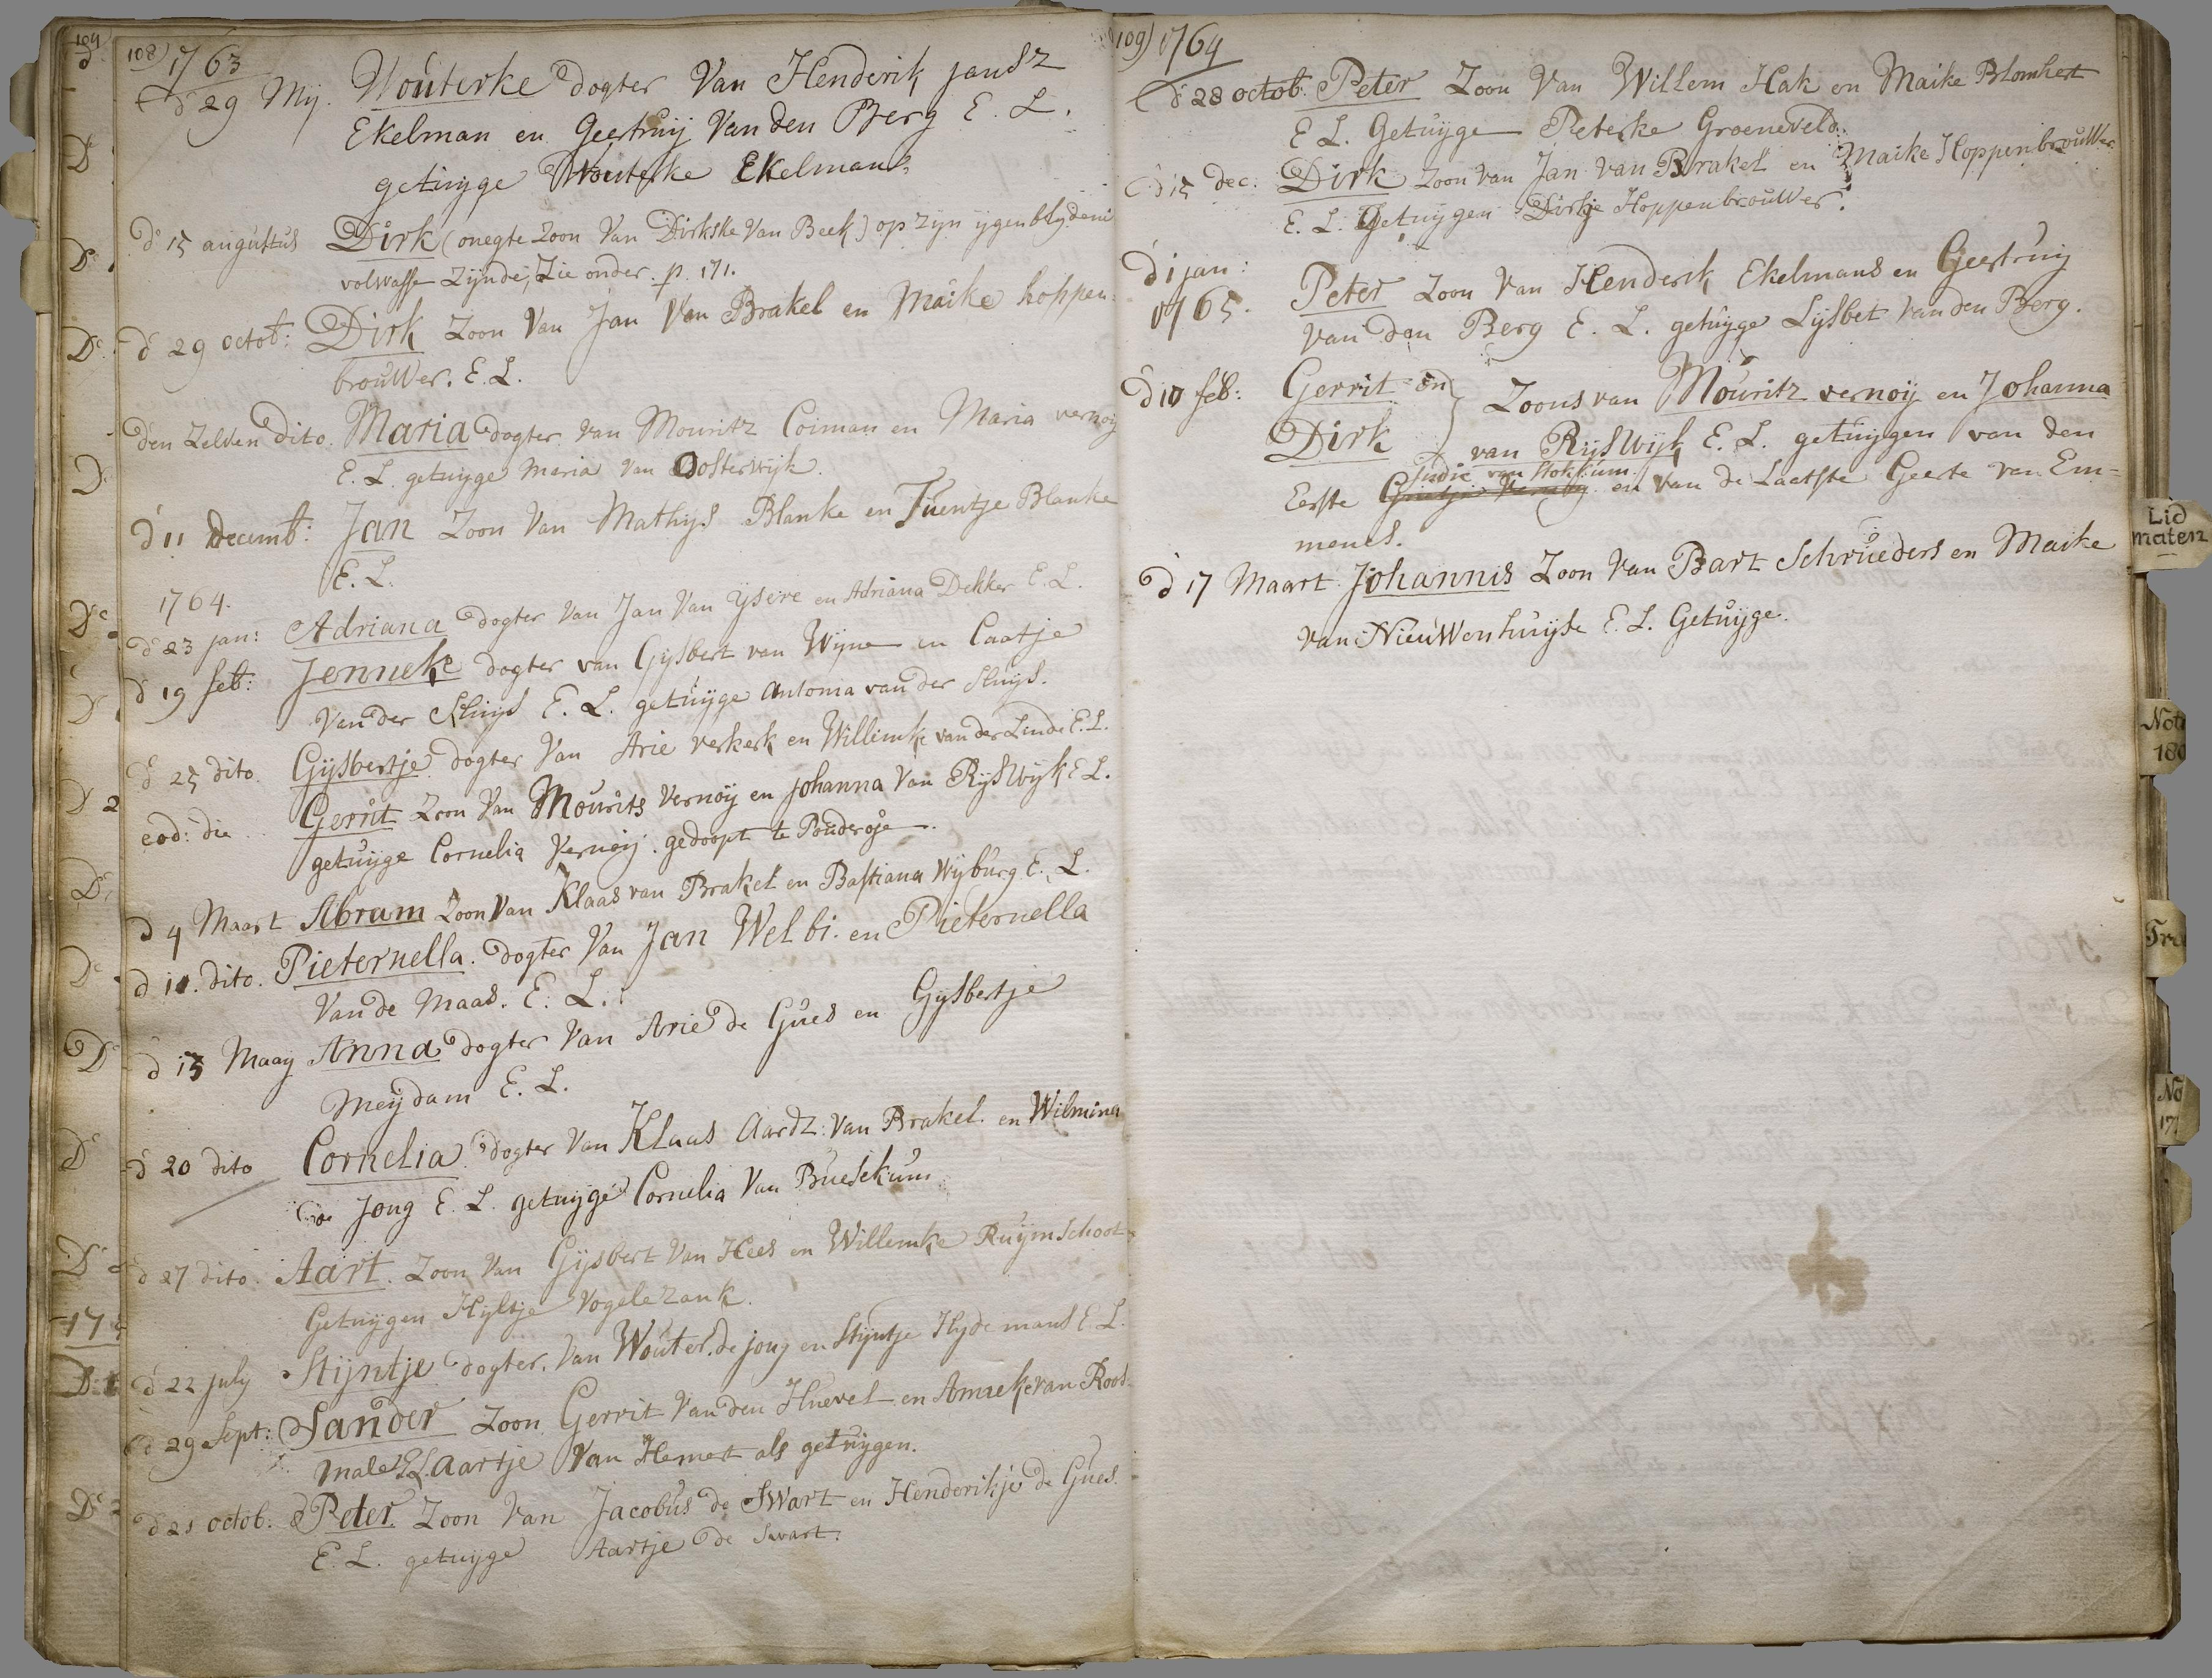 108) 1763
d 29 Mij. Wouterke dogter Van Henderik jansz
Ekelman en Geertruij Van den Berg E. L.
getuijge Wouterke Ekelmans
d 15 augustus Dirk (onegte zoon Van Dirkske Van Beek) op zijn ijgen
volwasse zijnde, Zie onder. p. 171.
d 29 octob: Dirk zoon Van Jan Van Brakel en Maike hoppen:
brouwer. E. L.
den zelven dito. Maria dogter van Mouritz Coiman en Maria vernoij
E. L. getuijge Maria van Oosterwijk.
d 11 Decemb: Jan Zoon Van Mathijs Blanke en Juentje Blanke
E. L.
1764.
d 23 jan: Adriana dogter Van Jan Van ijsere en Adriana Dekker E. L.
d 19 feb: Jenneke dogter van Gijsbert van Wijne en Caatje
Van der Sluijs E. L. getuijge Antonia van der Sluijs.
d 25 dito. Gijsbertje dogter Van Arie verkerk en Willemke van der Linde E. L.
eod: die Gerrit Zoon Van Mourits Vernoij en johanna Van Rijswijk E L.
getuijge Cornelia Vernoij. gedoopt te Pouderoje.
d 4 Maart Abram zoon Van Klaas van Brakel en Bastiana Wijburg E. L.
d 11. dito. Pieternella. dogter Van Jan Welbi. en Pieternella
Van de Maas. E. L.
d 13 Maaij Anna dogter Van Arie de Gues en Gijsbertje
Meijdam E. L.
d 20 dito Cornelia dogter Van Klaas Aardz: Van Brakel. en Wilmina
de Jong E. L. getuijge Cornelia Van Buesekum
d 27 dito. Aart. Zoon Van Gijsbert Van Hees en Willemke Ruijmschoot
Getuijgen Hijltje Vogelezank.
d 22 july Stijntje dogter. Van Wouter. de jong en Stijntje Hijdemans E. L.
d 29 Sept: Sander Zoon Gerrit Van den Huevel en Anneke van Roos
male E L Aartje Van Hemert als getuijgen.
d 21 octob. Peter Zoon Van Jacobus de Swart en Henderikje de Gues.
E. L. getuijge Aartje de Swart.
109) 1764
d 28 octob: Peter Zoon Van Willem Hak en Maike Blomhert
E L. Getuijge Peterke Groeneveld.
d 15 dec: Dirk zoon Van Jan van Brakel en Maike Hoppenbrouwer
E. L. Getuijgen Dirkje Hoppenbrouwer.
d 1 jan:
1765. Peter Zoon Van Henderik Ekelmans en Geertruij
van den Berg E. L. getuijge Lijsbet Van den Berg.
d 10 feb: Gerrit en
Dirk
Zoons van Mouritz vernoij en Johanna
van Rijswijk E. L. getuijgen van den
van Stokkum.
Eerste en van de Laatste Geerte van Em-
menes.
d 17 Maart Johannis Zoon Van Bart Schrueders en Maike
van Nieuwenhuijse E. L. Getuijge.
Lid
maten